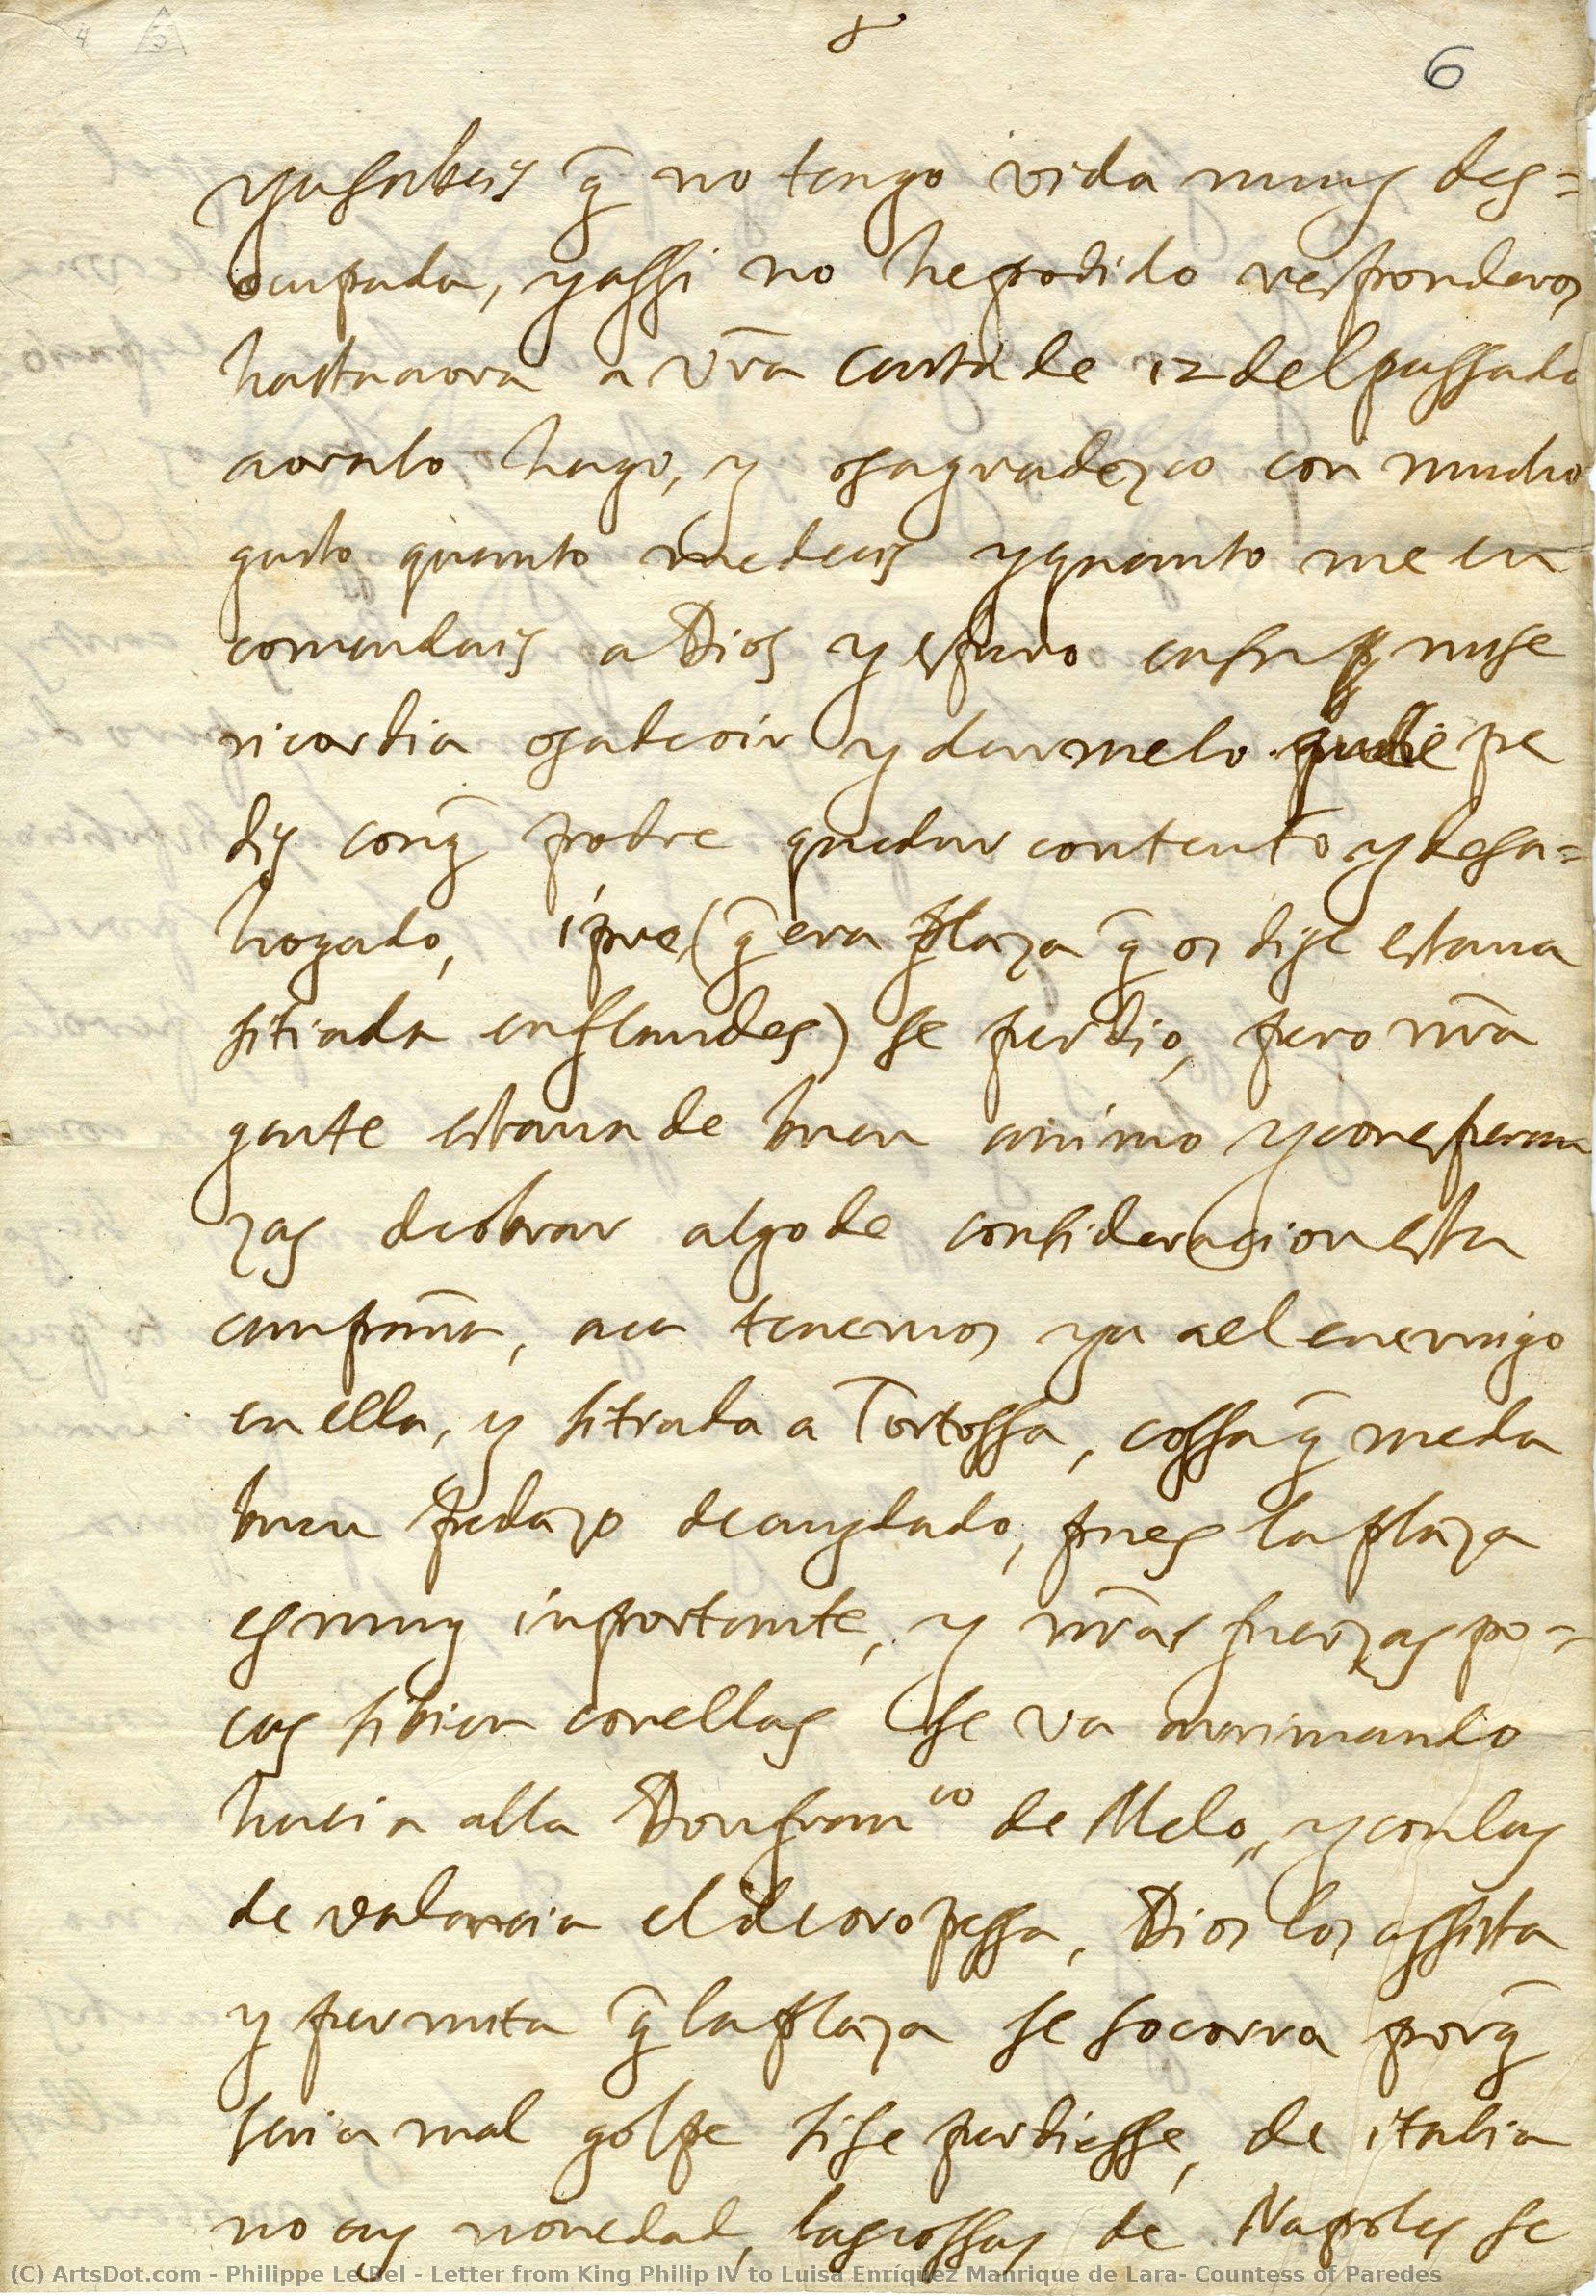 6
ya sabeis q̃ no tengo vida muy des=
ocupada, y assi no he podido responderos
hasta aora a vr̃a carta de 12 del passado
aora lo hago, y os agradezco con mucho
gusto quanto me decis y quanto me en
comendais a Dios y espero en su mise
ricordia os a de oir y darmelo que le pe
dis con q̃ podre quedar contento y desa=
hogado, ipre (q̃ era plaza q̃ os dije estaua
sitiada en flandes) se perdio, pero nr̃a
gente estaua de buen animo y con esperan
zas de obrar algo de consideracion esta
campaña, aca tenemos ya a el enemigo
en ella, y sitiada a Tortossa, cossa q̃ me da
buen pedazo de cuydado, pues la plaza
es muy inportante, y nr̃as fuerzas po=
cas si bien con ellas se va arrimando
hacia alla Don franco de Melo, y con las
de valencia el de oropessa, Dios los assista
y permita q̃ la plaza se socorra porq̃
seria mal golpe si se perdiesse, de italia
no ay novedad, las cossas de Napoles se
(C) ArtsDot.com - Philippe Le Bel - Letter from King Philip IV to Luisa Enríquez Manrique de Lara- Countess of Paredes